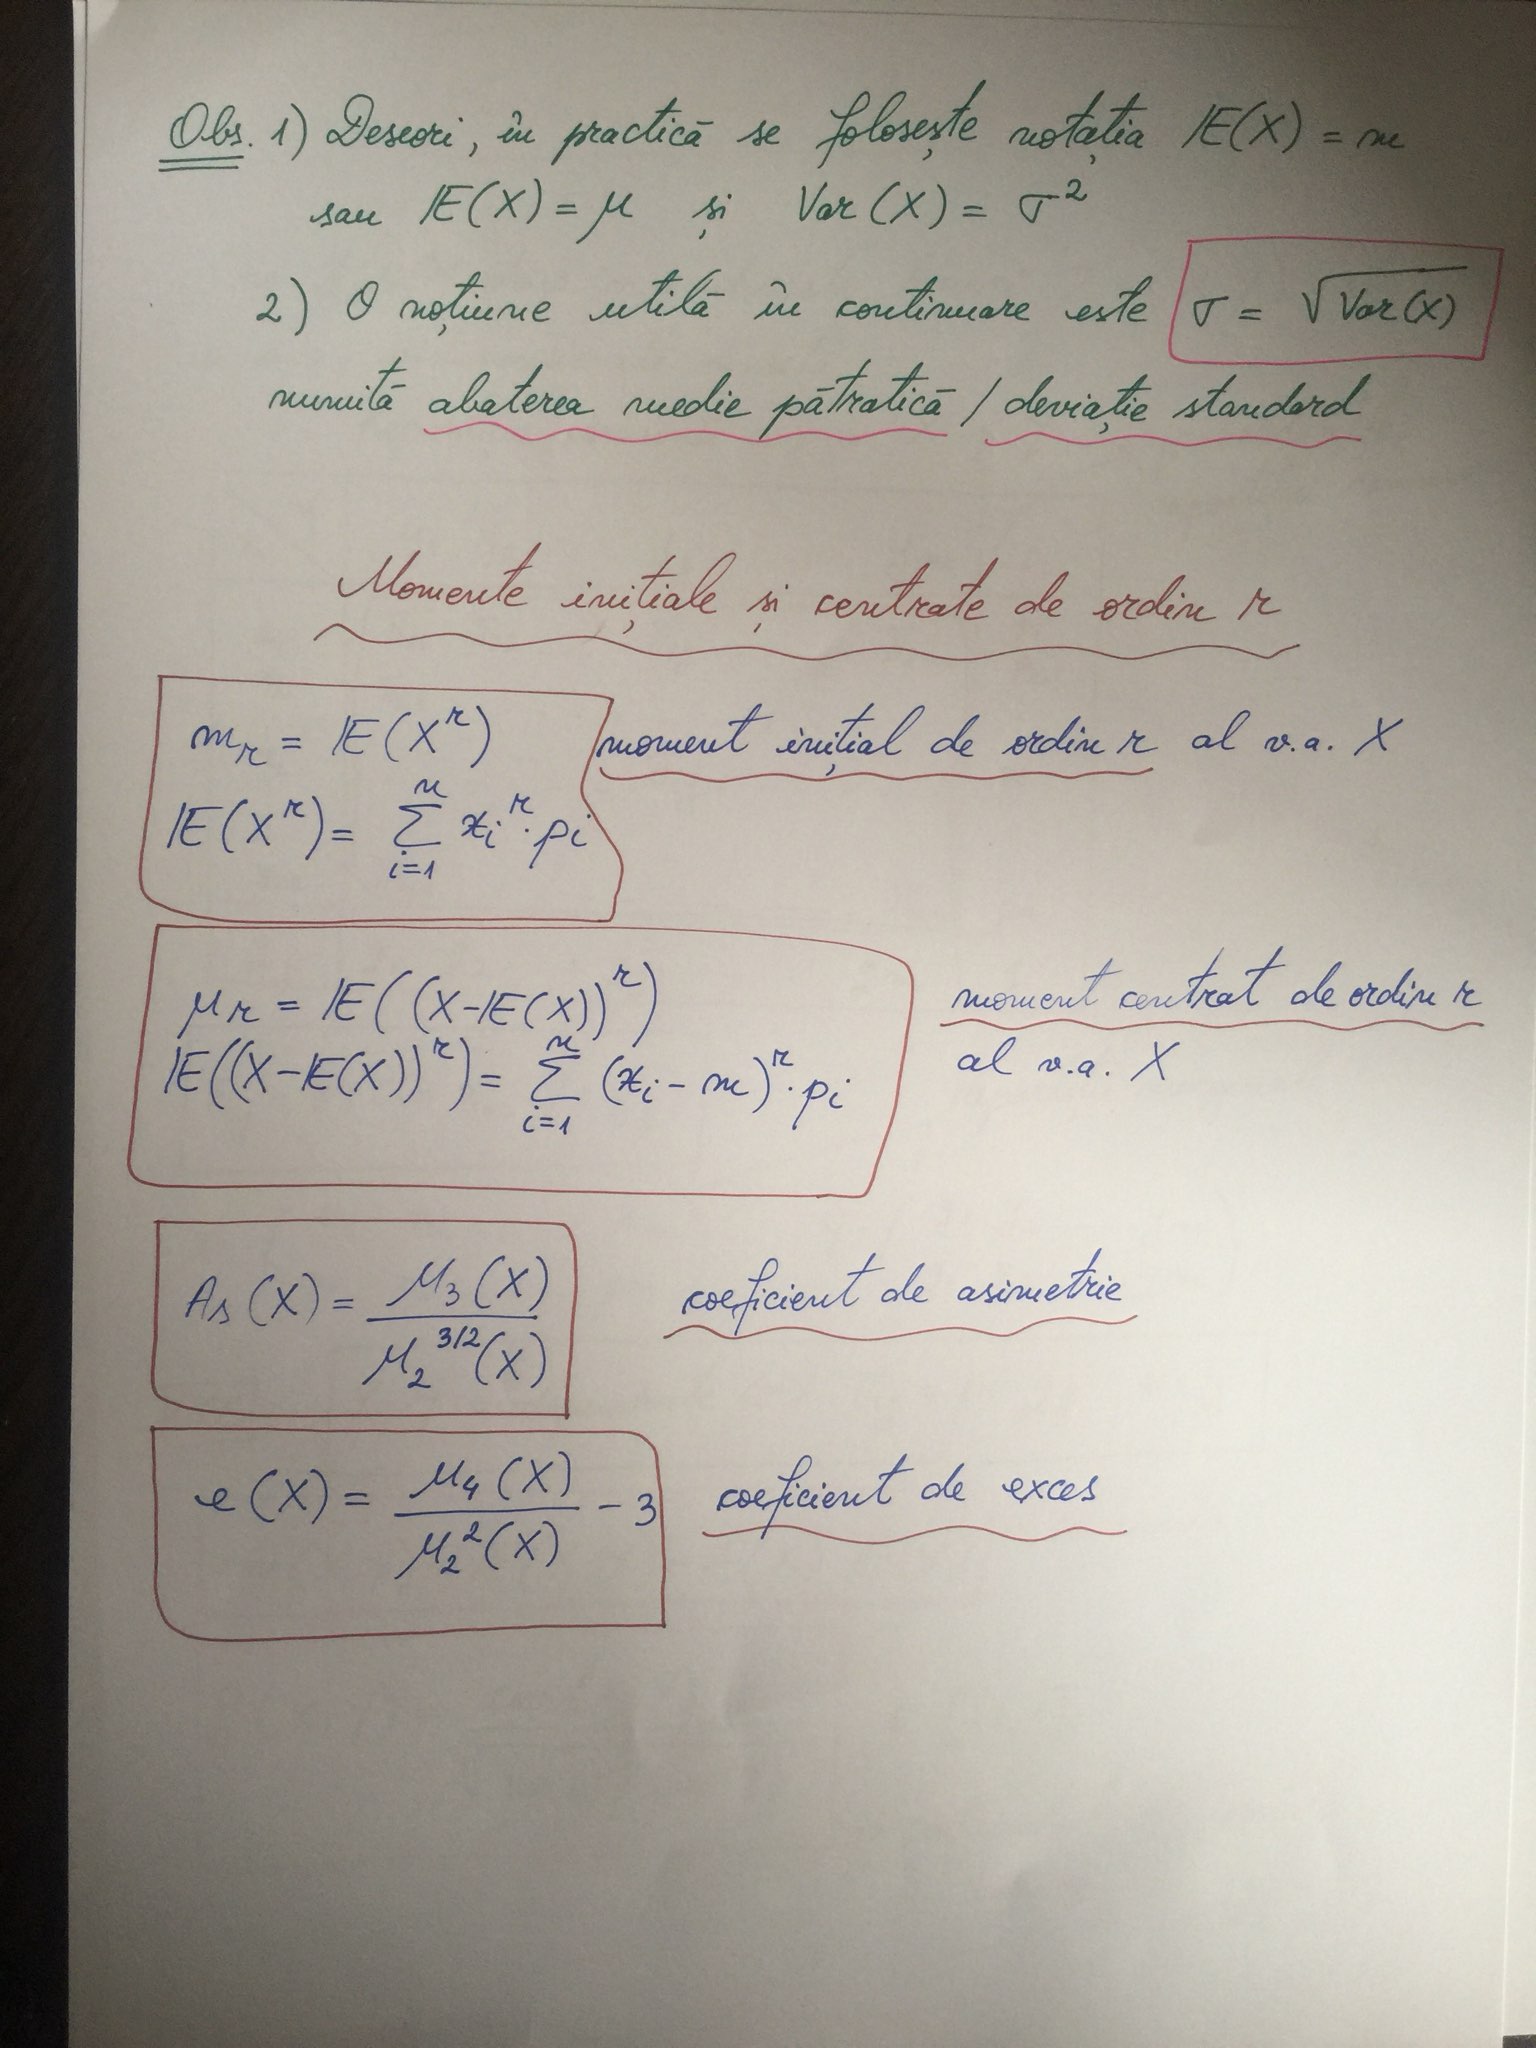 Obs. 1) Deseori, în practică se folosește notația IE(X) = m
sau IE(X) = μ și Var(X) = σ²
2) O noțiune utilă în continuare este σ = √Var(X)
numită abaterea medie pătratică / deviație standard
Momente inițiale și centrate de ordin r
m_r = IE(X^r) moment inițial de ordin r al v.a. X
IE(X^r) = ∑_{i=1}^{n} x_i^r · p_i
μ_r = IE((X-IE(X))^r) moment centrat de ordin r
IE((X-IE(X))^r) = ∑_{i=1}^{n} (x_i - m)^r · p_i al v.a. X
As(X) = μ_3(X) / μ_2^{3/2}(X) coeficient de asimetrie
e(X) = μ_4(X) / μ_2^2(X) - 3 coeficient de exces